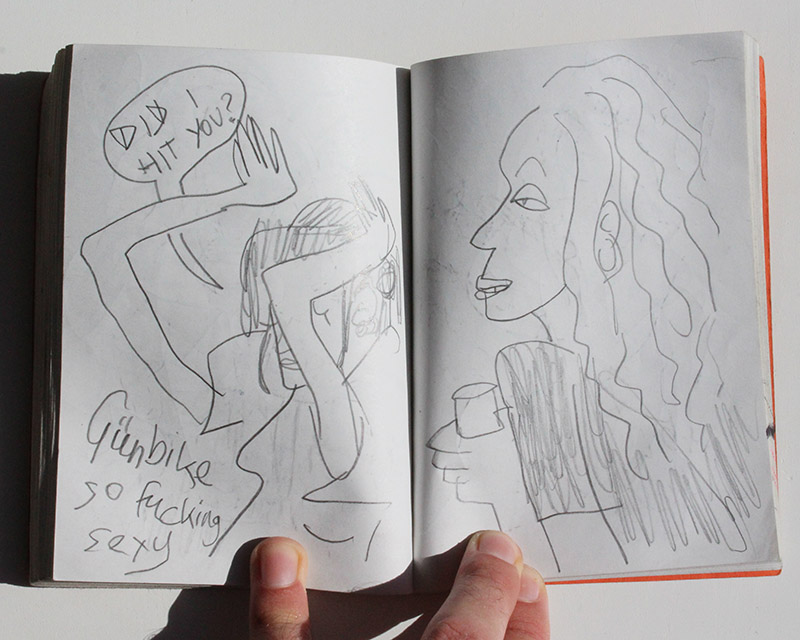 DID I
HIT YOU?
Günbike
so fucking
sexy